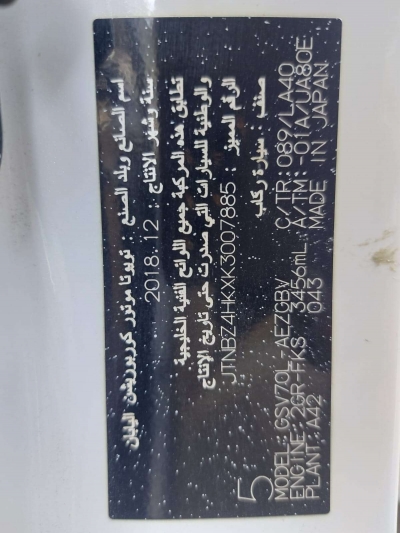 اسم الصانع وبلد الصنع : تويوتا موتور كوربوريشن اليابان
سنة وشهر الانتاج : 2018.12
تطابق هذه المركبة جميع اللوائح الفنية الخليجية
والوطنية للسيارات التي صدرت حتى تاريخ الإنتاج
الرقم المميز : JTNBZ4HKXK3007885
صنف : سيارة ركاب
5
MODEL: GSV70L-AEZGBV C/TR: 089/LA40
ENGINE: 2GR-FKS 3456mL A/TM: -01A/UA80E
PLANT: A42 043 MADE IN JAPAN